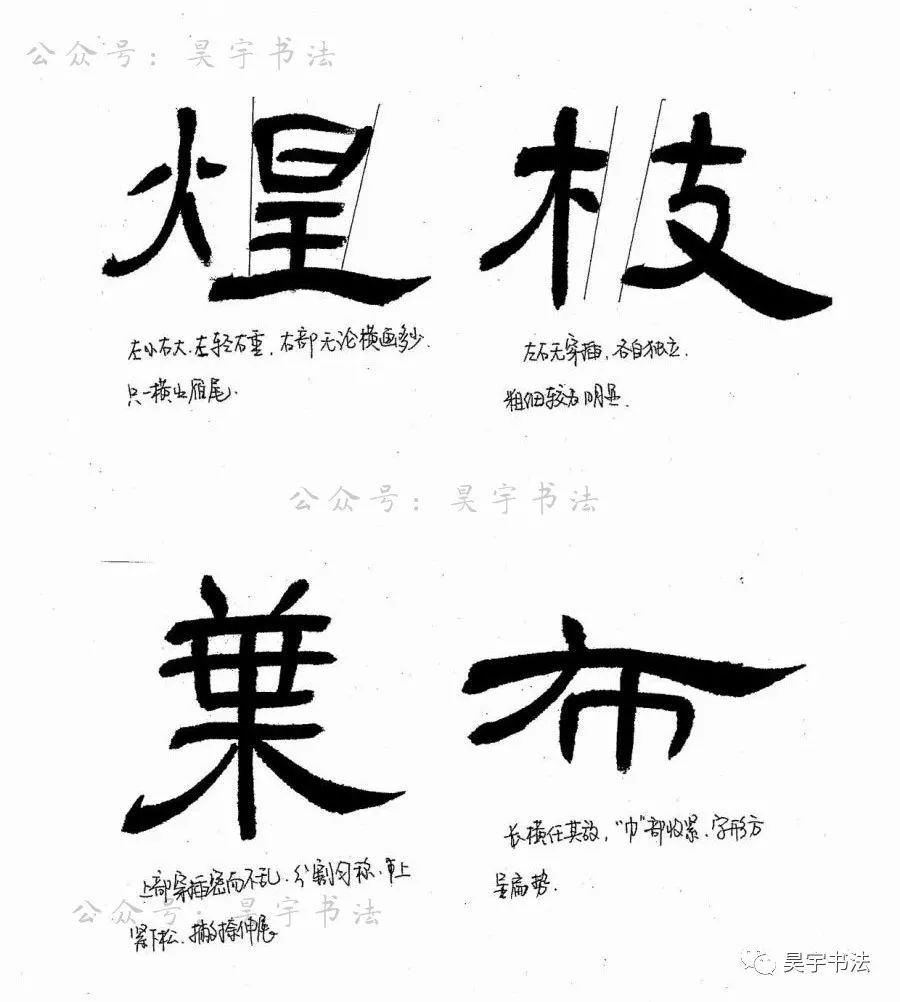 公众号：昊宇书法
煌
枝
左小右大、左轻右重，右部无论横画多少，
只一横出雁尾.
左右无穿插，各自独立.
粗细较为明显.
公众号：昊宇书法
葉
布
上部穿插密而不乱，分割匀称，上
紧下松，撇捺伸展
长横任其放，"巾"部收紧，字形方
呈扁势.
公众号：昊宇书法
昊宇书法